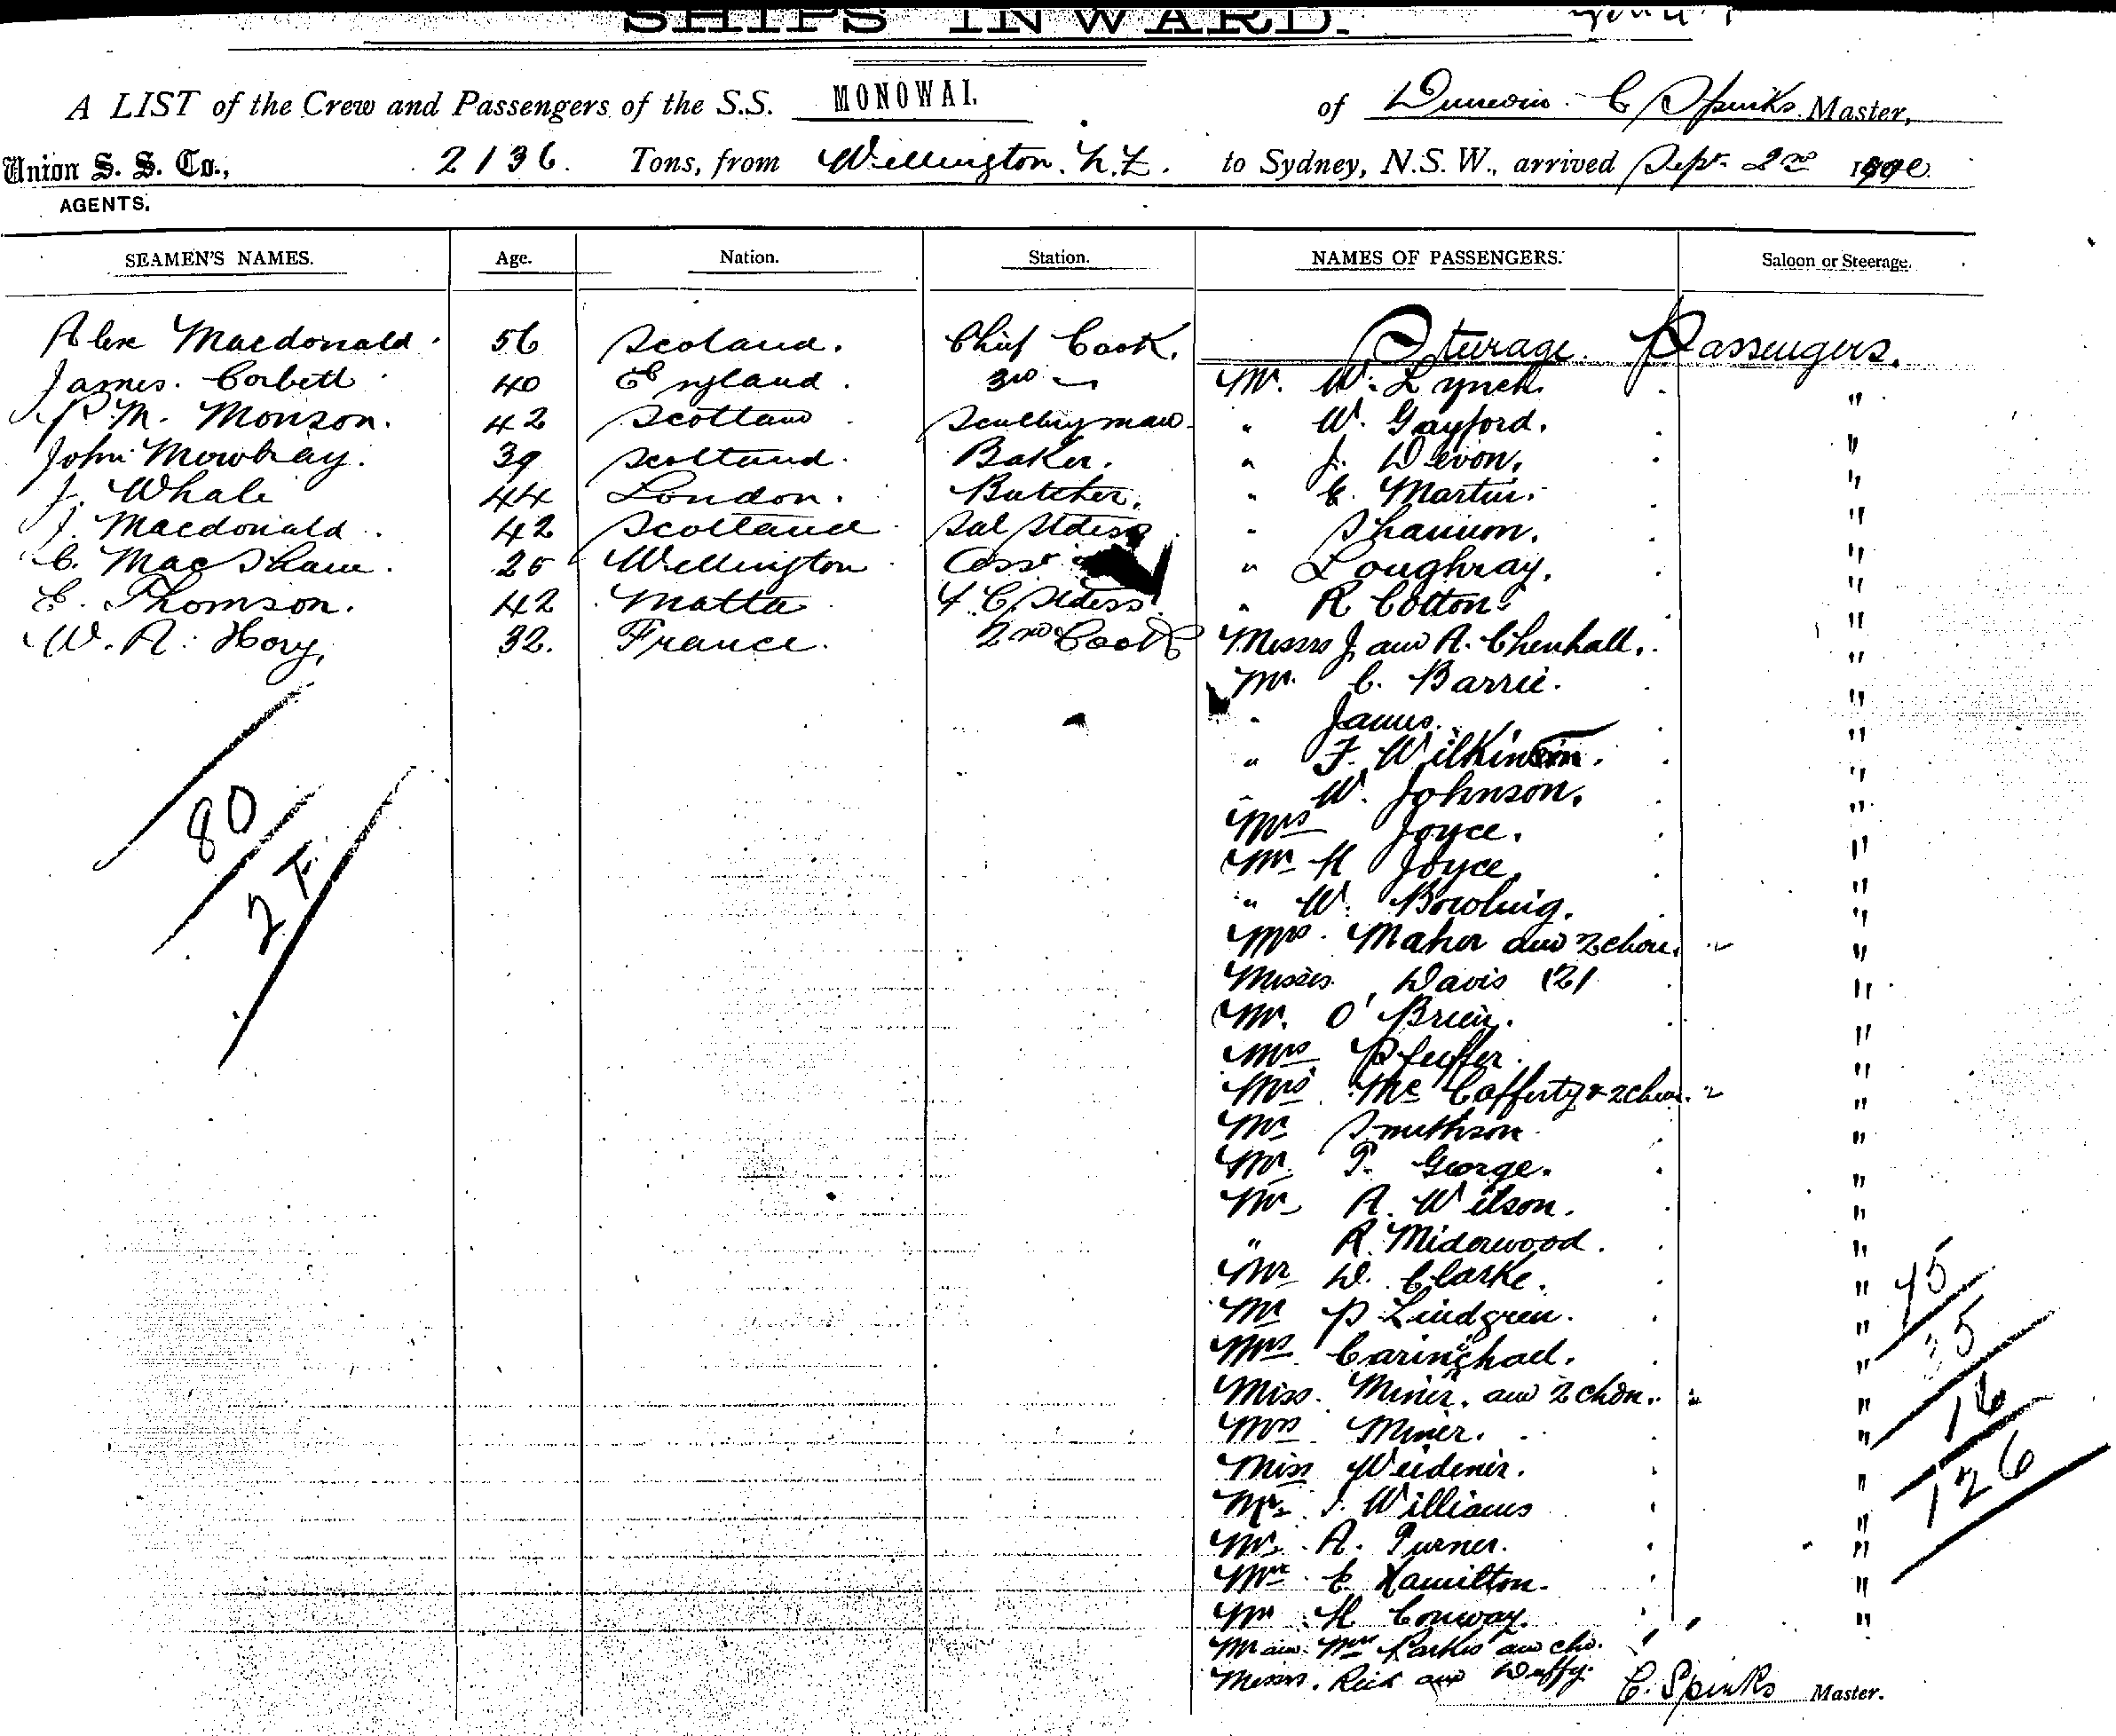 SHIPS INWARD.
A LIST of the Crew and Passengers of the S.S. MONOWAI. of Dunedin. C Spinks. Master,
Union S. S. Co., 2136. Tons, from Wellington. N.Z. to Sydney, N.S.W., arrived Sept. 2nd
AGENTS.
SEAMEN'S NAMES. Age. Nation. Station. NAMES OF PASSENGERS. Saloon or Steerage.
Steerage Passengers.
Alex Macdonald. 56 Scoland. Chief Cook.
James. Corbett 40 England. 3rd " Mr. W. Lynch. "
P. M. Monson. 42 Scotland Scullery man " W. Gayford. "
John Mowbray. 39 Scotland. Baker. " J. Devon. "
J. Whale 44 London. Butcher. " C. Martin. "
J. Macdonald. 42 Scotland Sal Stdess " Shannon. "
C. MacShane. 26 Wellington Asst " Loughray. "
E. Thomson. 42 Malta F. C. Stdess. " R Cotton "
W. A. Hory, 32. France. 2nd Cook Messrs J. and A. Chenhall. "
Mr. C. Barrie. "
" James. "
" F. Wilkinson. "
" W. Johnson. "
Mrs Joyce. "
Mr H Joyce "
" W. Bowling. "
Mrs. Maher and 2 chdn. 2 "
Misses. Davis (2) "
Mr. O'Brien. "
Mrs Pfeiffer. "
Mrs McCafferty & 2 chdn. 2 "
Mr Smithson "
Mr. T. George. "
Mr A. Wilson. "
" R. Miderwood. "
Mr D. Clarke. "
Mr P Lindgren. "
Mrs "
Miss. Miner. and 2 chdn. 2 "
Mrs Miner. "
Miss Weidenir. "
Mr. Williams "
Mr. A. Turner. "
C. Hamilton. "
Mr H Conway. "
M and Mrs Parkes and chd.
Messrs. Rick and Duffy.
C. Spinks Master.
80
2 F.
45
16
126